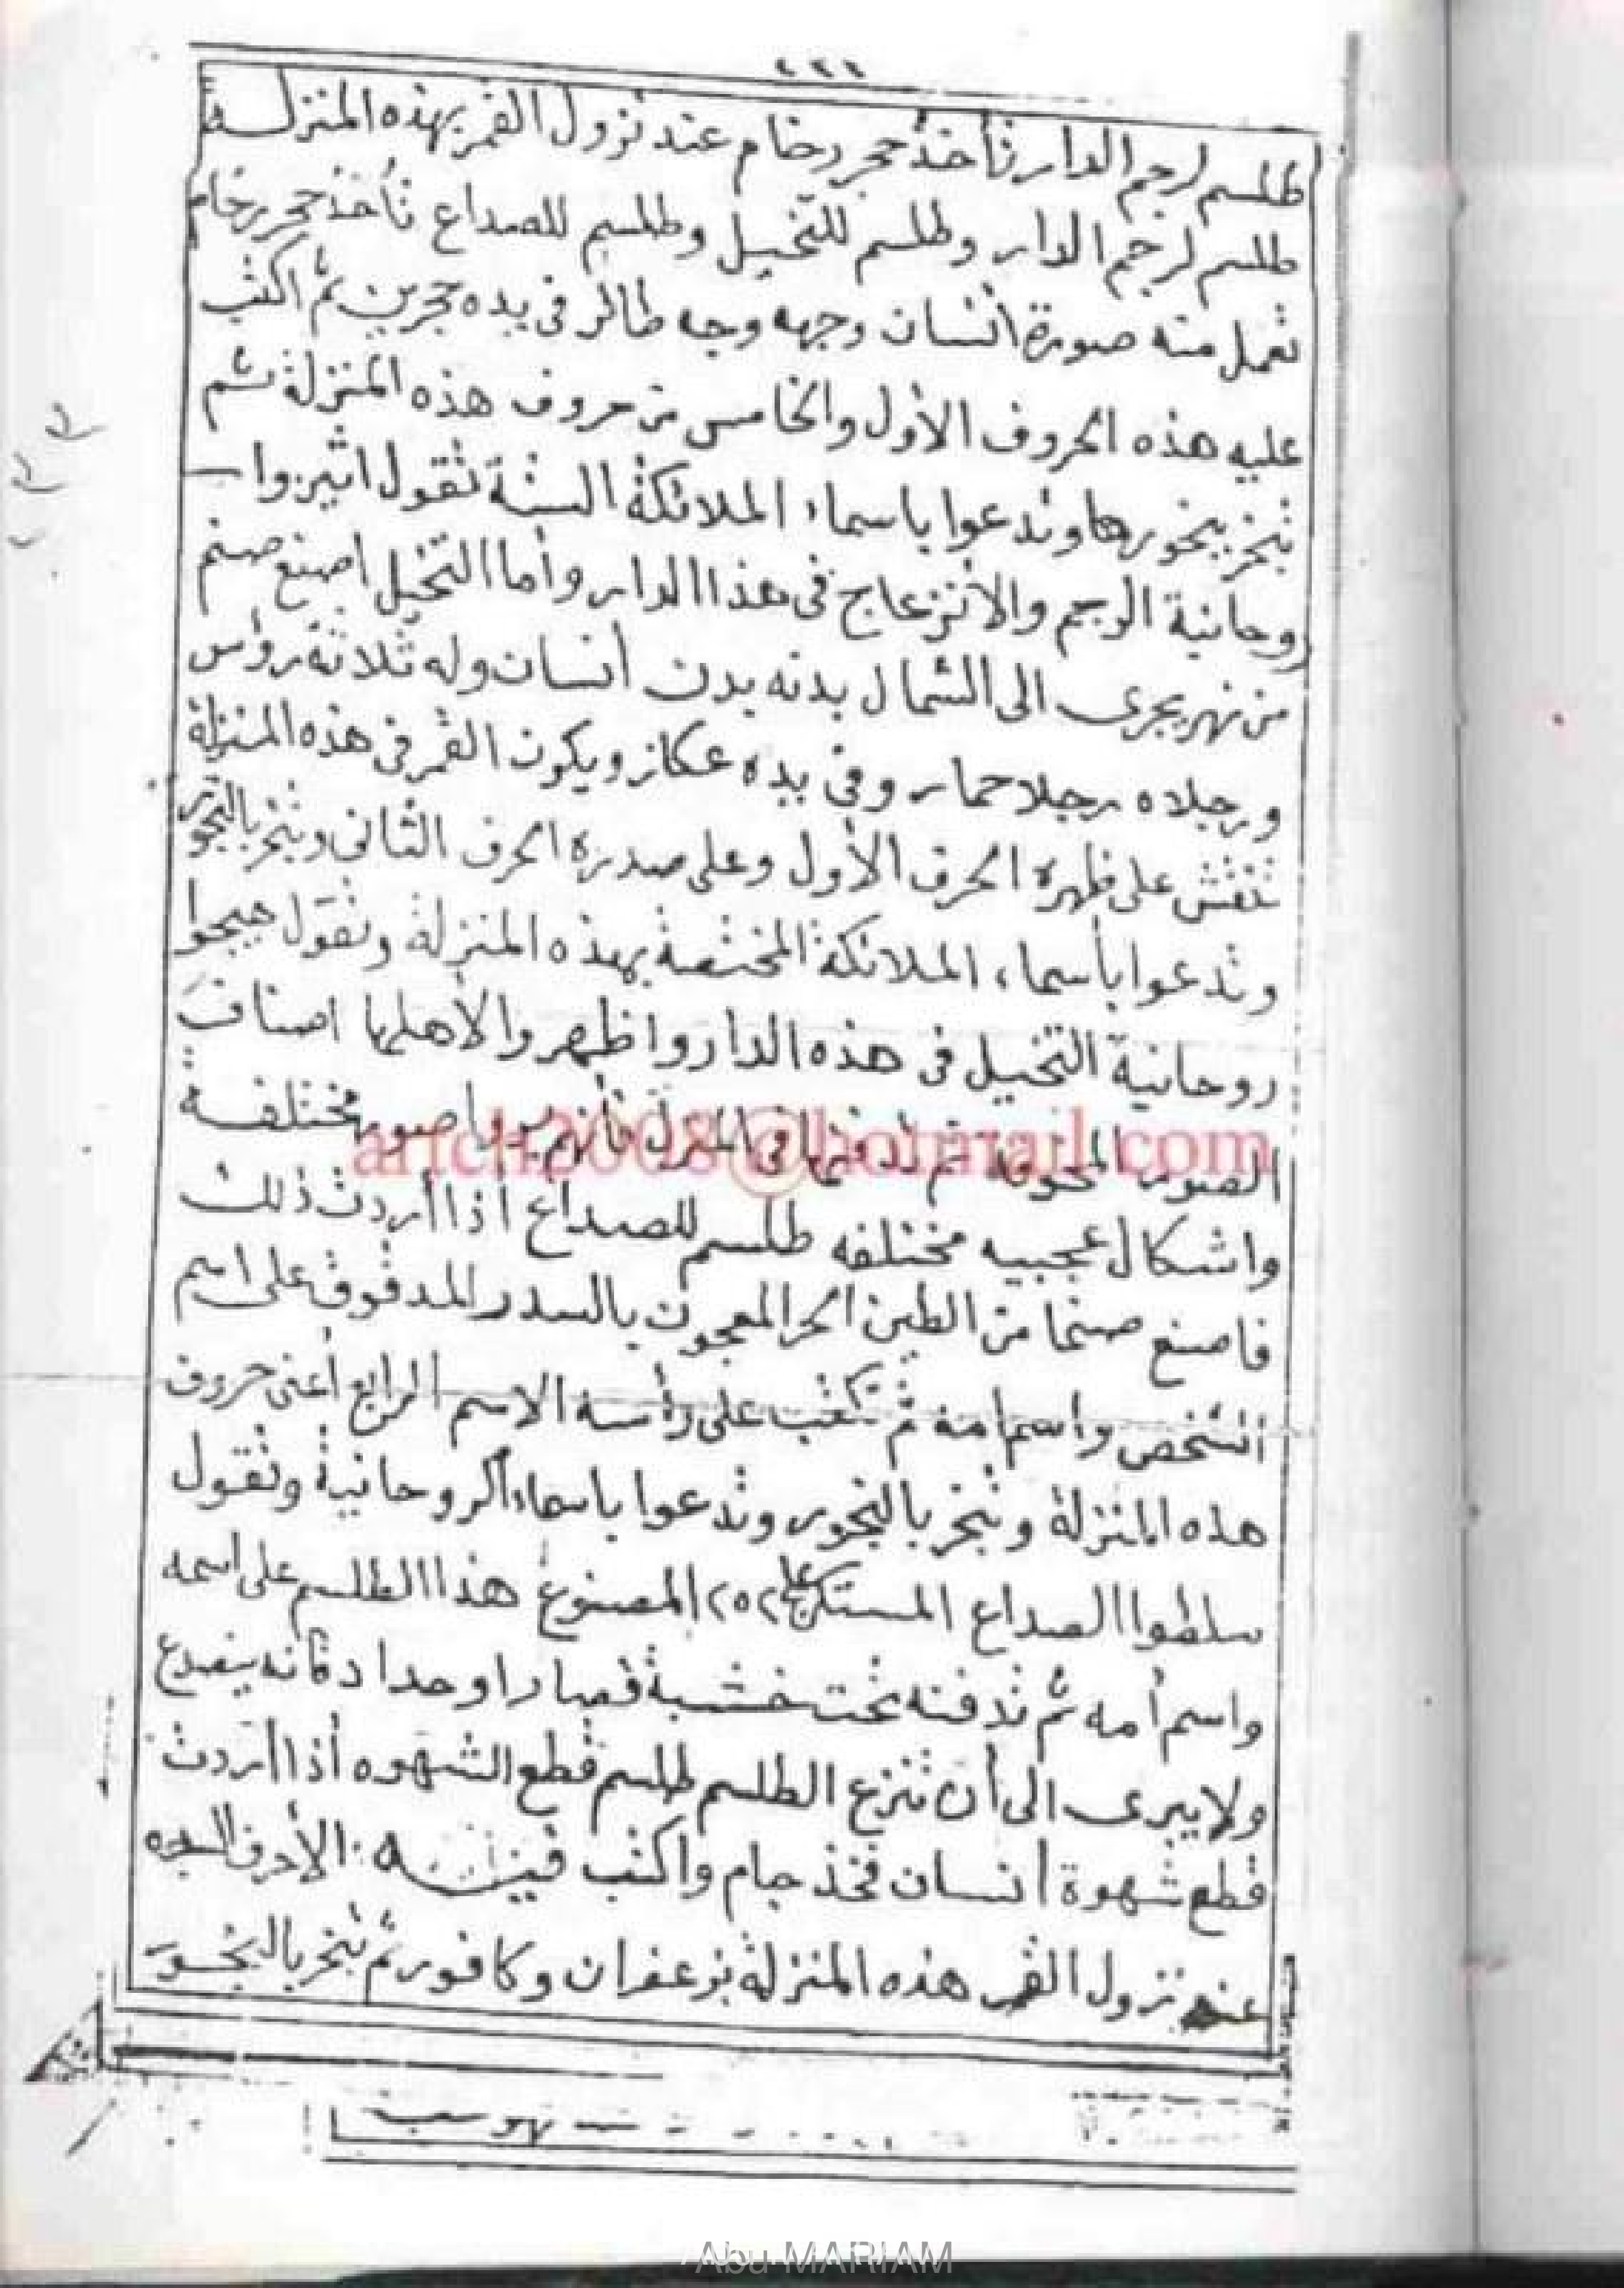 ٤٣١
طلسم لرجم الدار تأخذ حجر رخام عند نزول القمر بهذه المنزلة
طلسم لرجم الدار وطلسم للتخييل وطلسم للصداع تأخذ حجر رخام
تعمل منه صورة انسان وجهه وجه طائر فى يده حجرين ثم اكتب
عليه هذه الحروف الأول والخامس من حروف هذه المنزلة ثم
تبخر ببخورها وتدعوا باسماء الملائكة الستة تقول اثيروا
روحانية الرجم والأنزعاج فى هذا الدار وأما التخيل اصنع صنم
من نهر يجرى الى الشمال بدنه بدن أنسان وله ثلاثة رؤس
ورجلاه رجلا حمار وفى يده عكاز ويكون القمر فى هذه المنزلة
تنقش على ظهره الحرف الأول وعلى صدره الحرف الثانى وتبخر بالبخور
وتدعوا بأسماء الملائكة المختصة بهذه المنزلة وتقول هيجوا
روحانية التخييل فى هذه الدار واظهروا لأهلها اصناف
الصور ثم تدفنها فى المنزل صور مختلفة
واشكال عجيبه مختلفه طلسم للصداع أذا أردت ذلك
فاصنع صنما من الطين الحر المعجون بالسدر المدقوق على اسم
الشخص واسم امه ثم تكتب على رأسه الاسم الرابع أعنى حروف
هذه المنزلة وتبخر بالبخور وتدعوا باسماء الروحانية وتقول
سلطوا الصداع على ٢٥٢ المصنوع هذا الطلسم على اسمه
واسم أمه ثم تدفنه تحت خشبة قصار او حداد فانه ينصدع
ولا يبرى الى أن تنزع الطلسم طلسم قطع الشهوه أذا أردت
قطع شهوة أنسان فخذ جام واكتب فيه الأحرف
عند نزول القمر هذه المنزلة بزعفران وكافور ثم تبخر بالبخور
arich2008@hotmail.com
Abu MARIAM